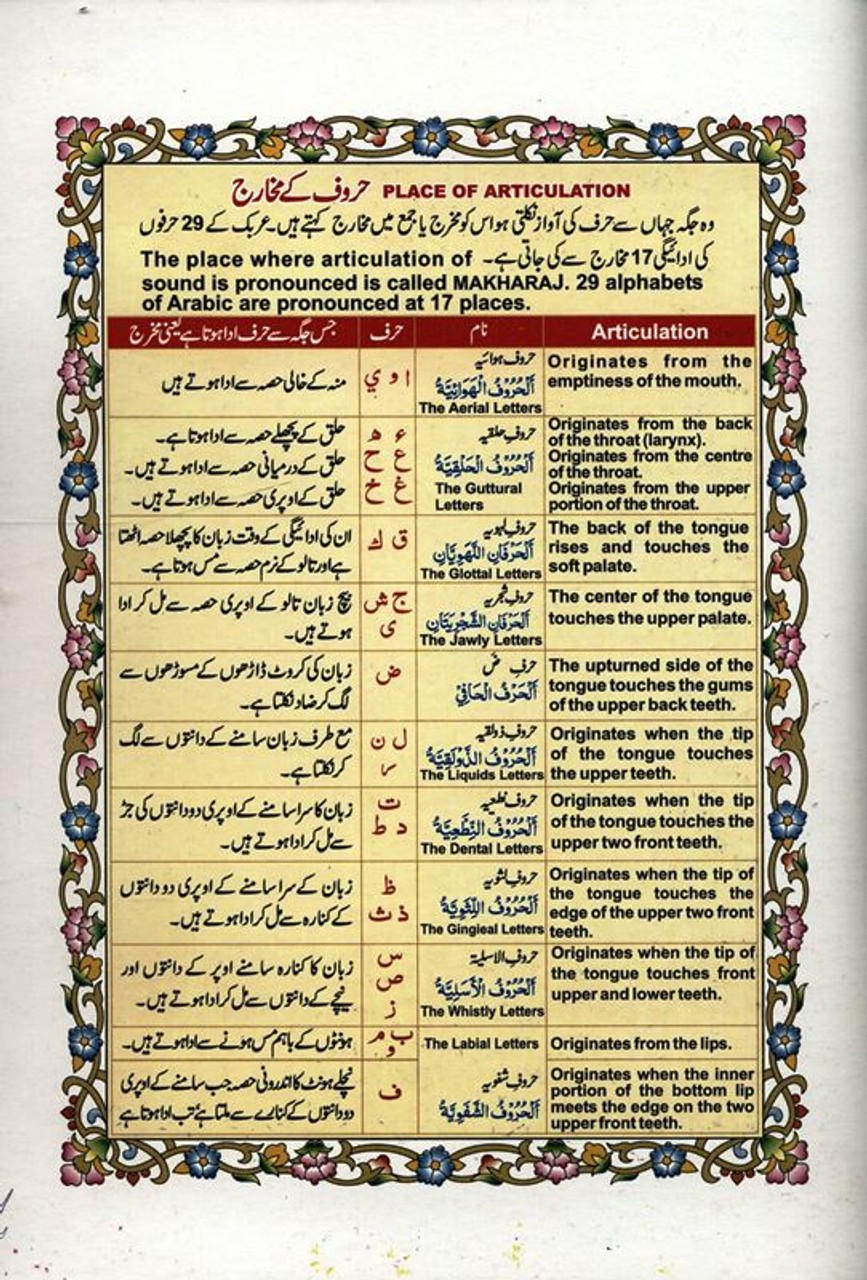 حروف کے مخارج PLACE OF ARTICULATION
وہ جگہ جہاں سے حرف کی آواز نکلتی ہو اس کو مخرج یا جمع میں مخارج کہتے ہیں۔ عربک کے 29 حرفوں
کی ادائیگی 17 مخارج سے کی جاتی ہے۔ The place where articulation of
sound is pronounced is called MAKHARAJ. 29 alphabets
of Arabic are pronounced at 17 places.
جس جگہ سے حرف ادا ہوتا ہے یعنی مخرج حرف نام Articulation
حروف ہوائیہ
اَلْحُرُوْفُ الْهَوَائِيَّةُ
The Aerial Letters
Originates from the
emptiness of the mouth.
ا و ي
منہ کے خالی حصہ سے ادا ہوتے ہیں
حروف حلقیہ
اَلْحُرُوْفُ الْحَلْقِيَّةُ
The Guttural
Letters
Originates from the back
of the throat (larynx).
Originates from the centre
of the throat.
Originates from the upper
portion of the throat.
ء ھ
ع ح
غ خ
حلق کے پچھلے حصہ سے ادا ہوتا ہے۔
حلق کے درمیانی حصہ سے ادا ہوتے ہیں۔
حلق کے اوپری حصہ سے ادا ہوتے ہیں۔
حروف لہویہ
اَلْحَرْفَانِ اللَّهَوِيَّانِ
The Glottal Letters
The back of the tongue
rises and touches the
soft palate.
ق ك
ان کی ادائیگی کے وقت زبان کا پچھلا حصہ اٹھتا
ہے اور تالو کے نرم حصہ سے مس ہوتا ہے۔
حروف شجریہ
اَلْحَرْفَانِ الشَّجْرِيَّتَانِ
The Jawly Letters
The center of the tongue
touches the upper palate.
ج ش
ى
بیچ زبان تالو کے اوپری حصہ سے مل کر ادا
ہوتے ہیں۔
حرفِ ضَ
اَلْحَرْفُ الْحَافِيْ
The upturned side of the
tongue touches the gums
of the upper back teeth.
ض
زبان کی کروٹ ڈاڑھوں کے مسوڑھوں سے
لگ کر ضاد نکلتا ہے۔
حروف ذولقیہ
اَلْحُرُوْفُ الذَّوْلَقِيَّةُ
The Liquids Letters
Originates when the tip
of the tongue touches
the upper teeth.
ل ن
ر
مع طرف زبان سامنے کے دانتوں سے لگ
کر نکلتا ہے۔
حروف نطعیہ
اَلْحُرُوْفُ النِّطْعِيَّةُ
The Dental Letters
Originates when the tip
of the tongue touches the
upper two front teeth.
ت
د ط
زبان کا سرا سامنے کے اوپری دو دانتوں کی جڑ
سے مل کر ادا ہوتے ہیں۔
حروف لثویہ
اَلْحُرُوْفُ اللِّثَوِيَّةُ
The Gingieal Letters
Originates when the tip of
the tongue touches the
edge of the upper two front
teeth.
ظ
ذ ث
زبان کے سرا سامنے کے اوپری دو دانتوں
کے کنارہ سے مل کر ادا ہوتے ہیں۔
حروف الاسلیۃ
اَلْحُرُوْفُ الْأَسَلِيَّةُ
The Whistly Letters
Originates when the tip of
the tongue touches front
upper and lower teeth.
س
ص
ز
زبان کا کنارہ سامنے اوپر کے دانتوں اور
نیچے کے دانتوں سے مل کر ادا ہوتے ہیں۔
The Labial Letters
Originates from the lips.
ب م
و
ہونٹوں کے باہم مس ہونے سے ادا ہوتے ہیں۔
حروف شفویہ
اَلْحُرُوْفُ الشَّفَوِيَّةُ
Originates when the inner
portion of the bottom lip
meets the edge on the two
upper front teeth.
ف
نچلے ہونٹ کا اندرونی حصہ جب سامنے کے اوپری
دو دانتوں کے کنارے سے ملتا ہے تب ادا ہوتا ہے